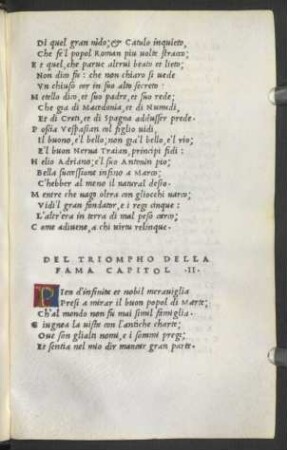 Di quel gran nido; & Catulo inquieto,
Che fe'l popol Roman piu uolte stanco;
E t quel, che parue altrui beato et lieto;
Non dico fu: che non chiaro si uede
Vn chiuso cor in suo alto secreto:
M etello dico, et suo padre, et suo rede;
Che gia di Macedonia, et di Numidi,
Et di Creti, et di Spagna addusser prede.
P oscia Vespasian col figlio uidi,
Il buono, e'l bello; non gia'l bello, e'l rio;
E'l buon Nerua Traian, principi fidi:
H elio Adriano; e'l suo Antonin pio;
Bella successione infino a Marco;
C'hebber al meno il natural desio.
M entre che uago oltra con gliocchi uarco;
Vidi'l gran fondator, e i regi cinque:
L'altr'era in terra di mal peso carco;
C ome adiuene, a chi uirtu relinque.
DEL TRIOMPHO DELLA
FAMA CAPITOL .II.
P Ien d'infinita et nobil merauiglia
Presi a mirar il buon popol di Marte;
Ch'al mondo non fu mai simil famiglia.
G iugnea la uista con l'antiche charte;
Oue son glialti nomi, e i sommi pregi;
Et sentia nel mio dir mancar gran parte.